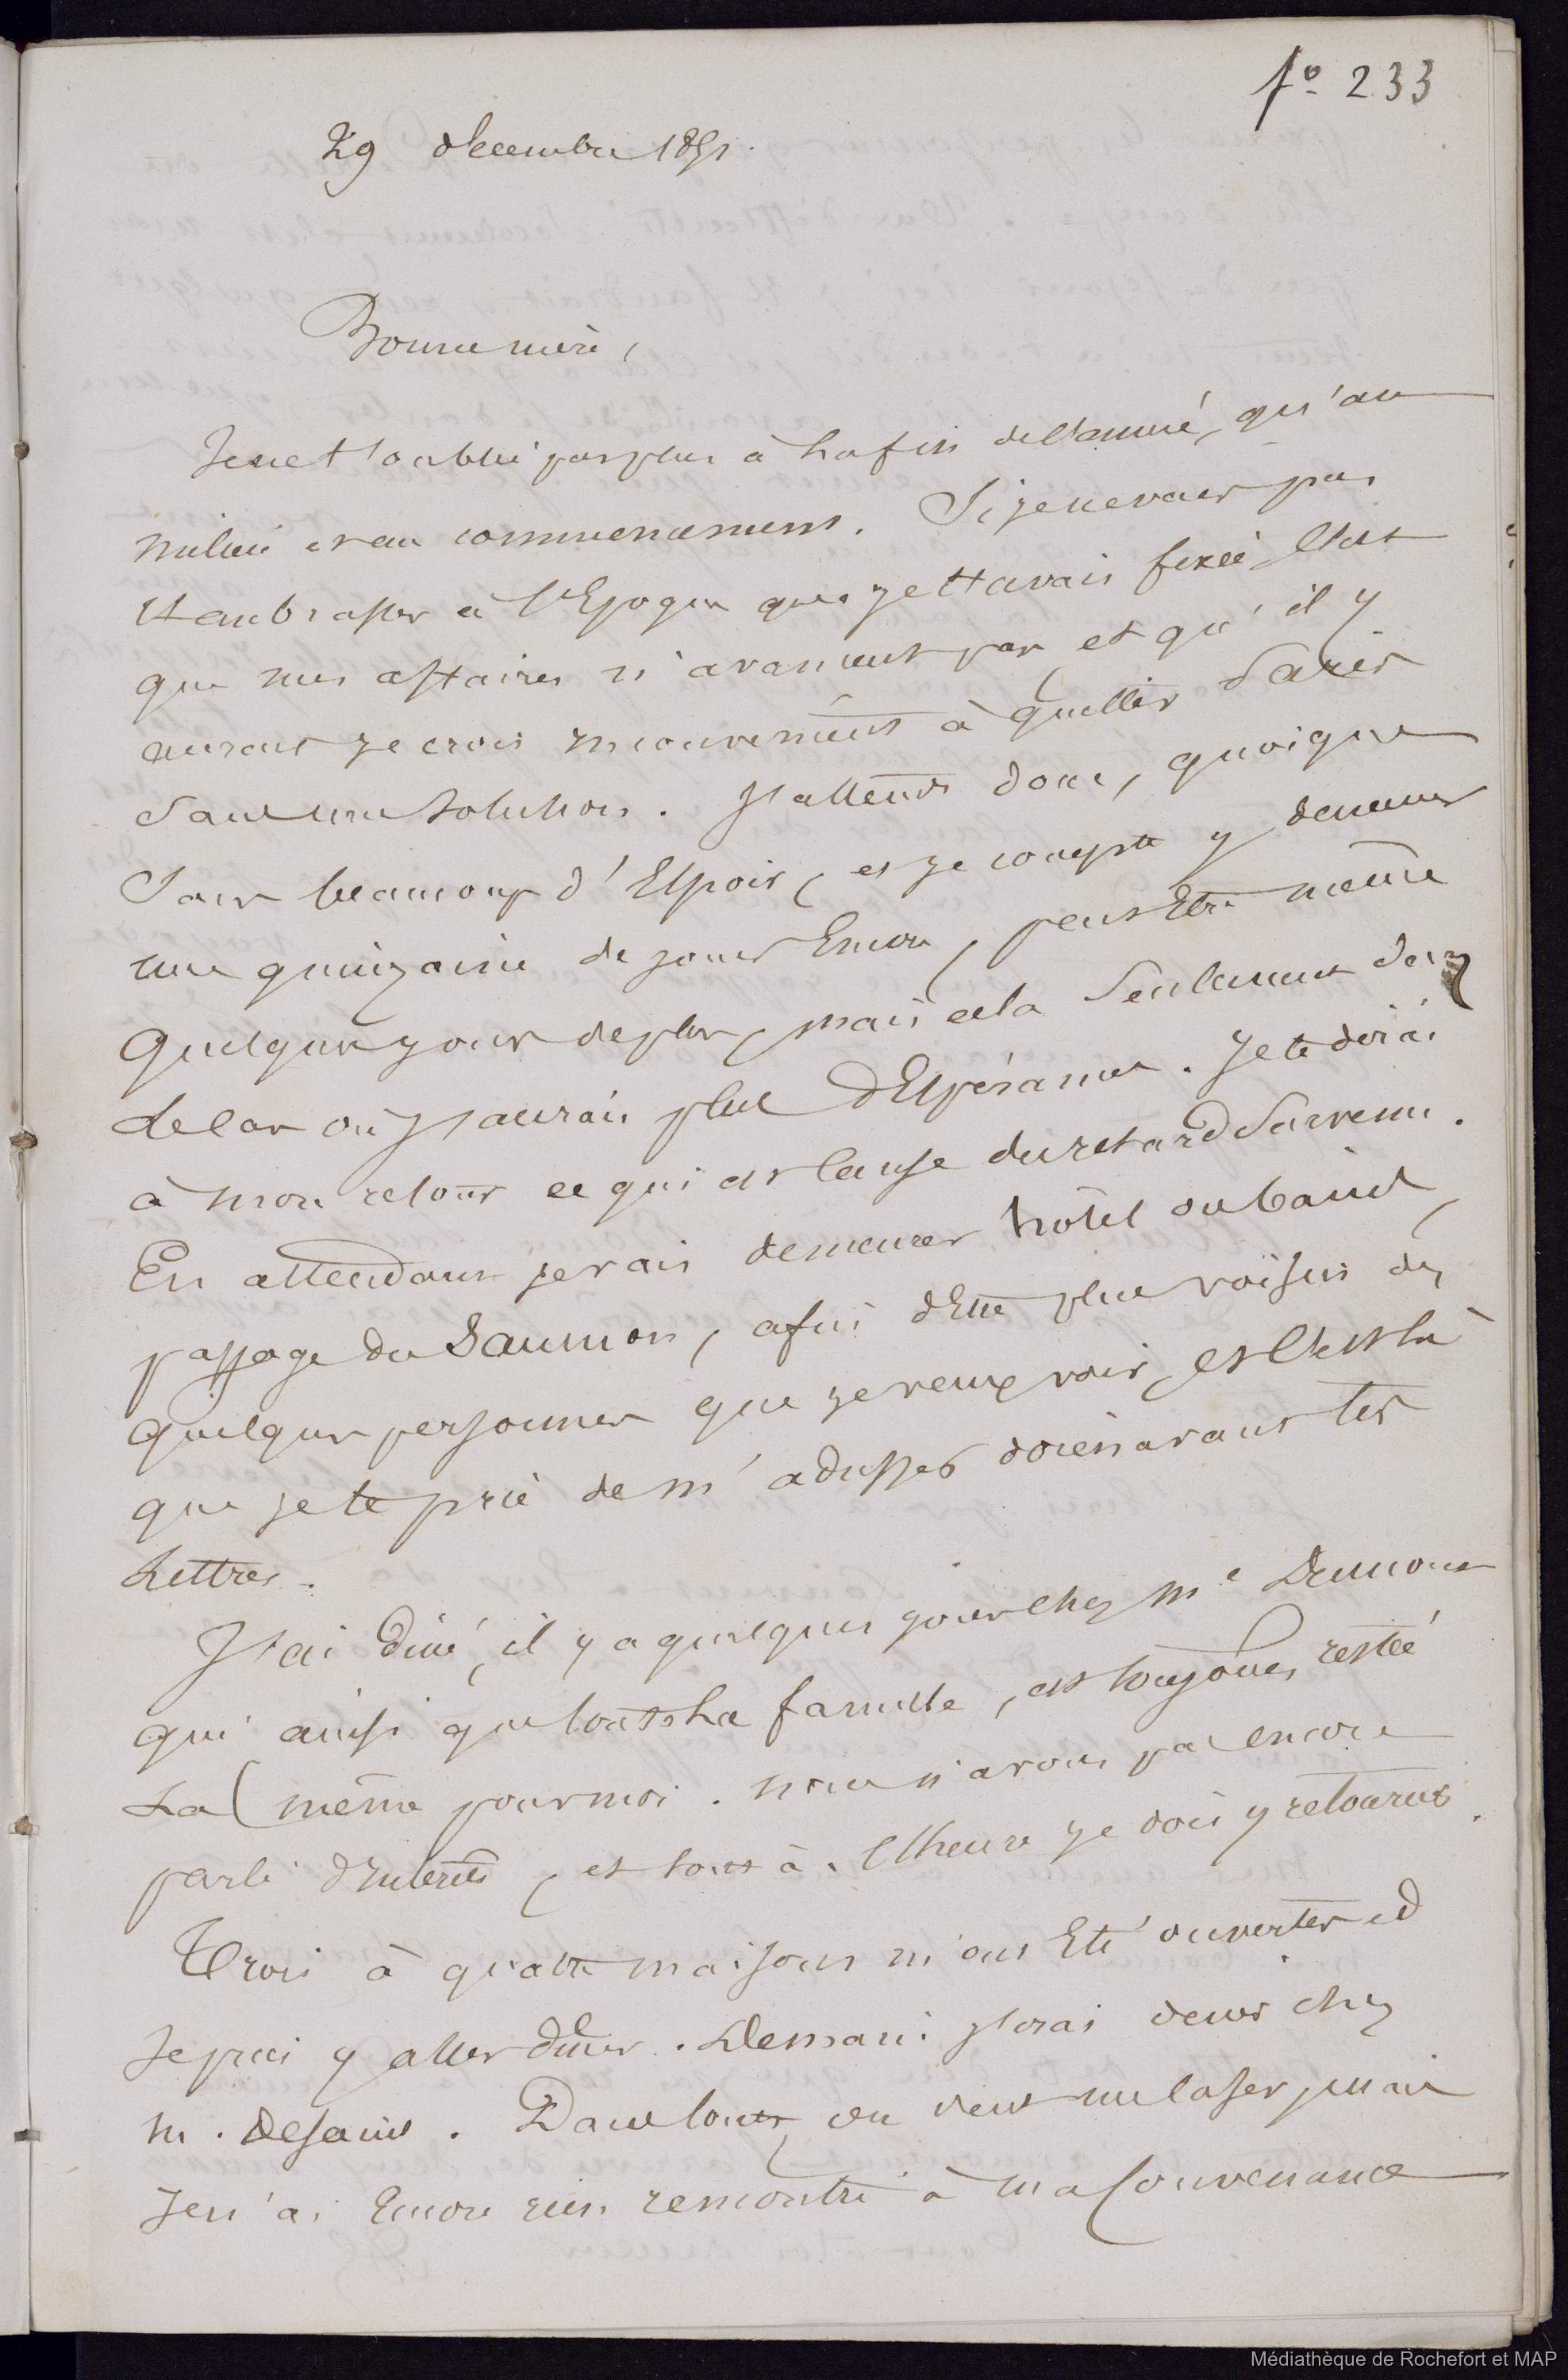 fo 233
29 décembre 1851.
Bonne mère,
Je ne t'oublie pas plus à La fin de l'année, qu'au
milieu et au commencement. Si je ne vais pas
t'embrasser à l'Epoque que je t'avais fixée, c'est
que mes affaires n'avancent pas et qu'il y
aurait je crois inconvenient à quitter Paris
Sans une Solution. J'attends donc, quoique
Sans beaucoup d'Espoir, et je compte y demeurer
une quinzaine de jours Encore, peut Etre même
quelques jours de plus, mais cela Seulement dans
le cas où J'aurais plus d'Espérance. Je te dirai
à mon retour ce qui est Cause du retard Survenu.
En attendant je vais demeurer hôtel
passage du Saumon, afin d'Etre plus voisin des
quelques personnes que je veux voir, et c'est là
que je te prie de m'adresser dorénavant tes
Lettres.
J'ai diné, il y a quelques jours chez Me Dumont
qui ainsi que toute La famille, est toujours restée
La même pour moi. nous n'avons pas encore
parlé d'intérêts, et tout à l'heure je dois y retourner.
Trois à quatre maisons m'ont Eté ouvertes et
Je puis y aller diner. Demain j'irai diner chez
M. . Dans tout, on veut me caser, mais
Je n'ai Encore rien rencontré à ma Convenance
Médiathèque de Rochefort et MAP